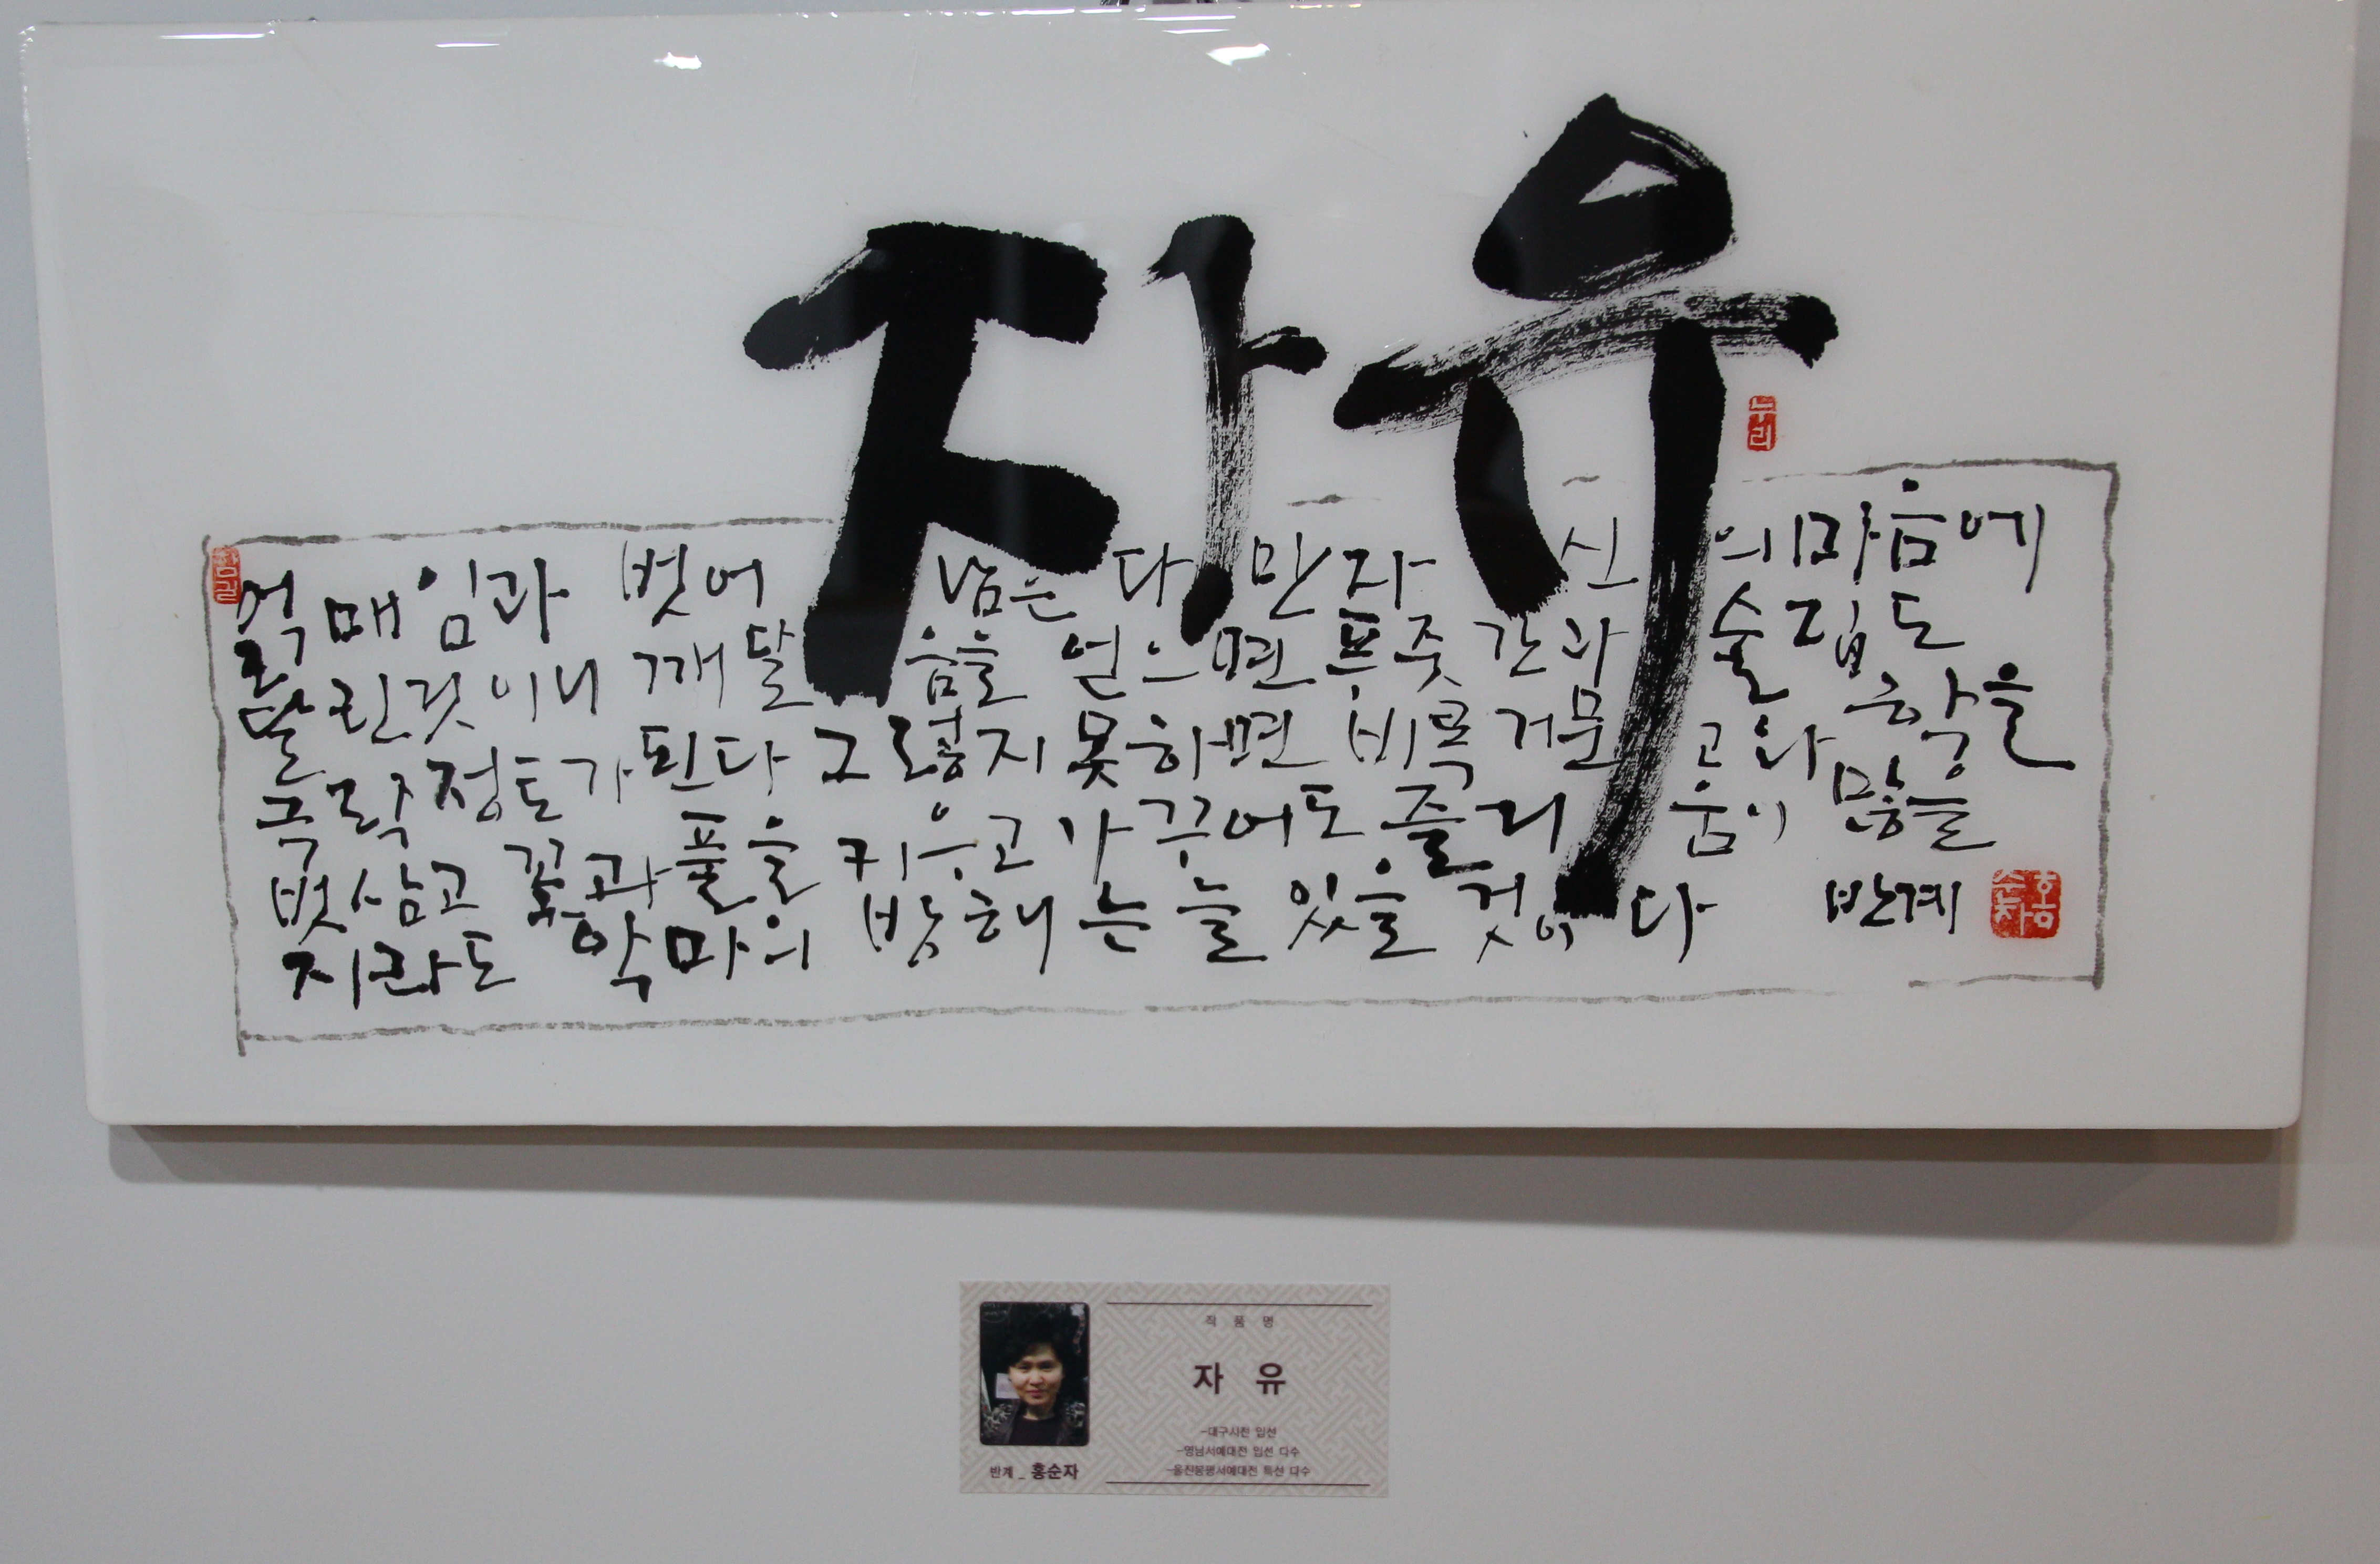 자유
누리
얽매임과 벗어남은 다만 자신의 마음에
달린 것이니 깨달음을 얻으면 푸줏간과 술집도
극락정토가 된다 그렇지 못하면 비록 거문고와 학을
벗삼고 꽃과 풀을 키우고 가꾸어도 즐거움이 많을
지라도 악마의 방해는 늘 있을 것이다 반계
홍순자
작 품 명
자 유
-대구시전 입선
-영남서예대전 입선 다수
-울진봉평서예대전 특선 다수
반계 _ 홍순자